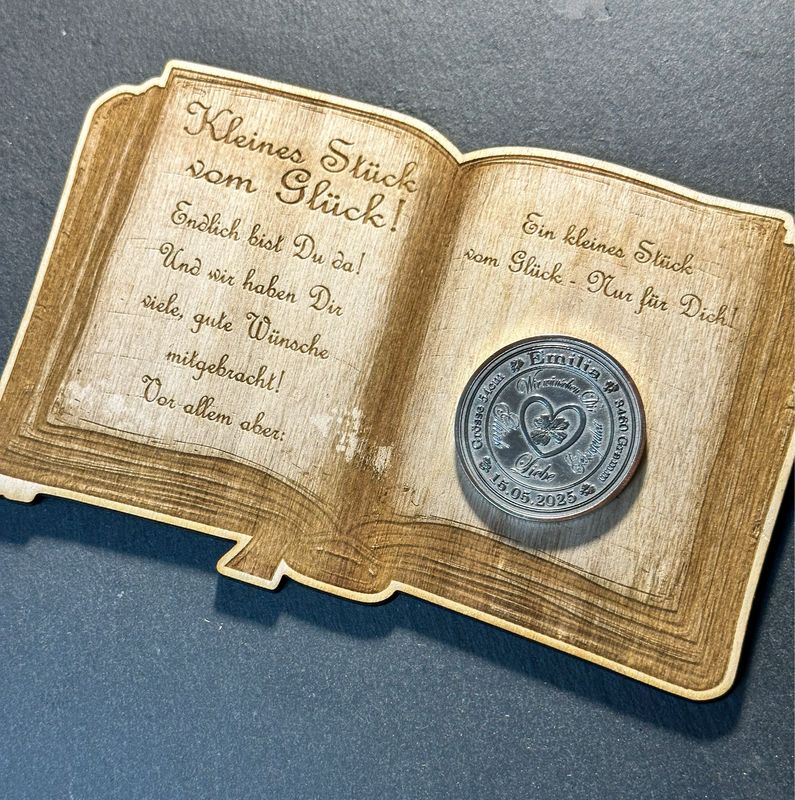 Kleines Stück
vom Glück!
Endlich bist Du da!
Und wir haben Dir
viele, gute Wünsche
mitgebracht!
Vor allem aber:
Ein kleines Stück
vom Glück - Nur für Dich!
Emilia
Grösse 51cm
3460 Gramm
15.05.2025
Wir wünschen Dir
Liebe